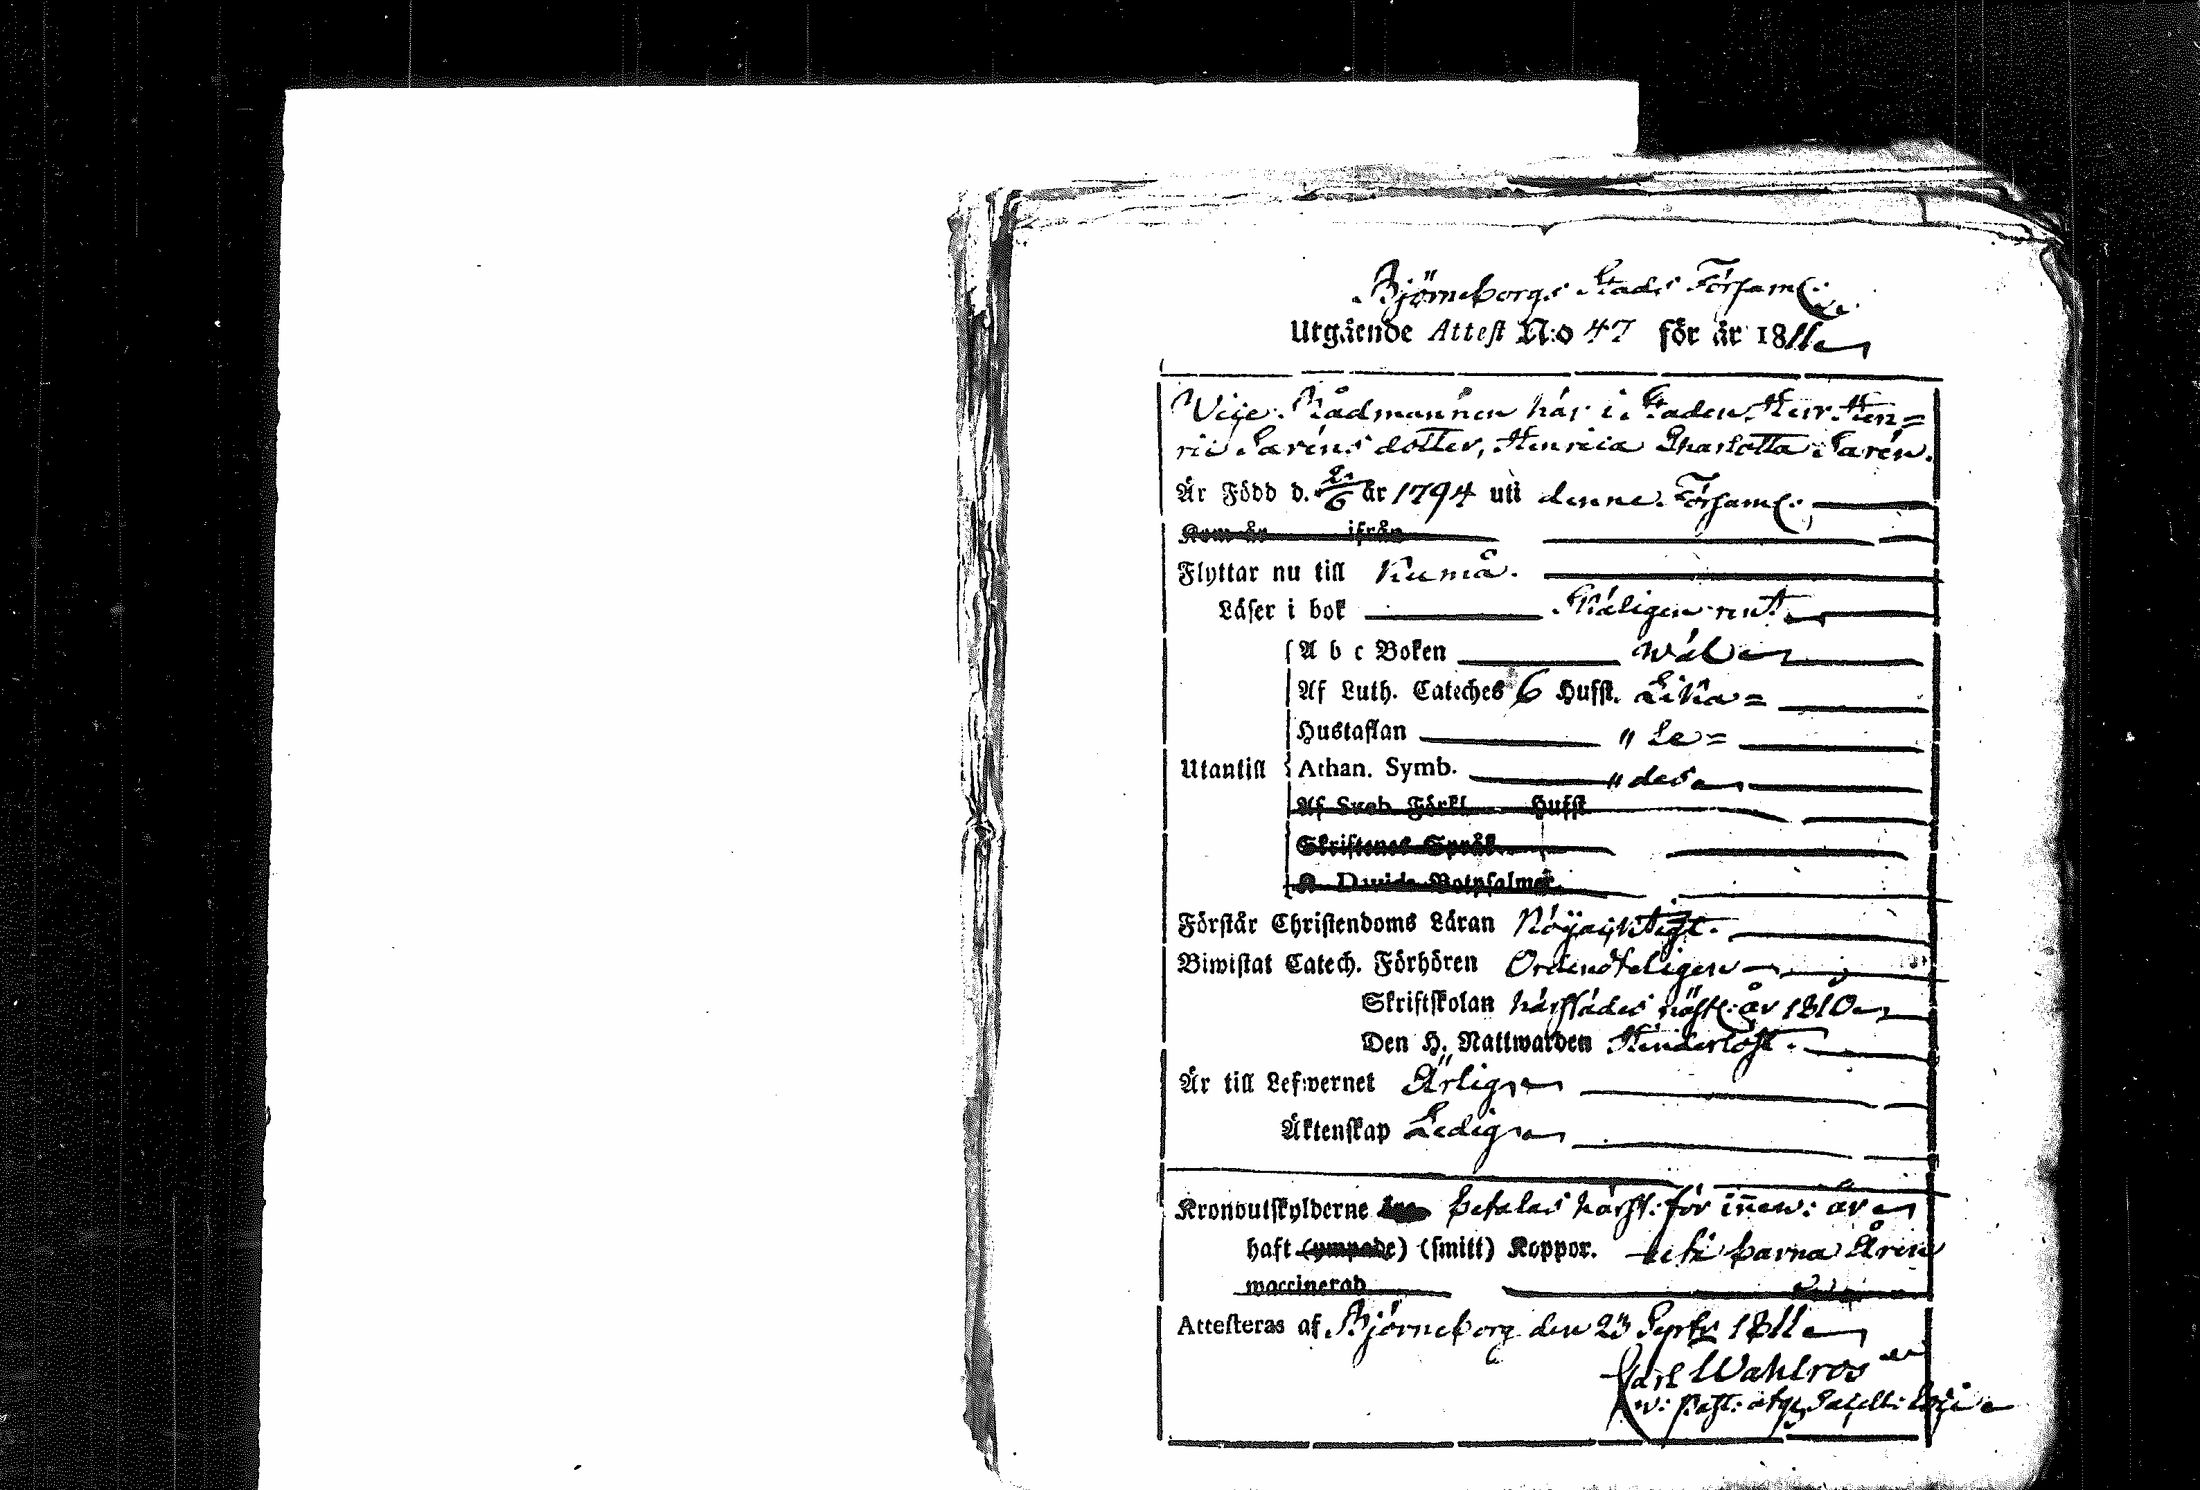 Björneborgs Stads Församl:
Utgående Attest N:o 47 för år 1811
Vice Rådmannen här i Staden, Herr Hen=
ric Saréns dotter, Henrica Charlotta Sarén.
Är Född d. 2/6 år 1794 uti denne Församl:
Kom år ifrån
Flyttar nu till Kumå.
Läser i bok Skäligen rent
A b c Boken wäl
Af Luth. Cateches 6 Hufst. Lika=
Hustaflan " Le=
Utantill Athan. Symb. " des
Af Sveb. Förkl. Hufst
Skriftenes Språk
K. Davids Botpsalmer.
Förstår Christendoms Läran Nöjaktigt.
Biwistat Catech. Förhören Ordenteligen
Skriftskolan härstädes näst: år 1810
Den H. Nattwarden Hinderlöst.
Är till Lefwernet Ärlig
Äktenskap Ledig
Kronoutskylderne betalas härst: för innew: år
haft (ympade) (smitt) Koppor. uti barna Åren
waccinerad
Attesteras af Björneborg den 23 Septr 1811
Carl Wahlroos